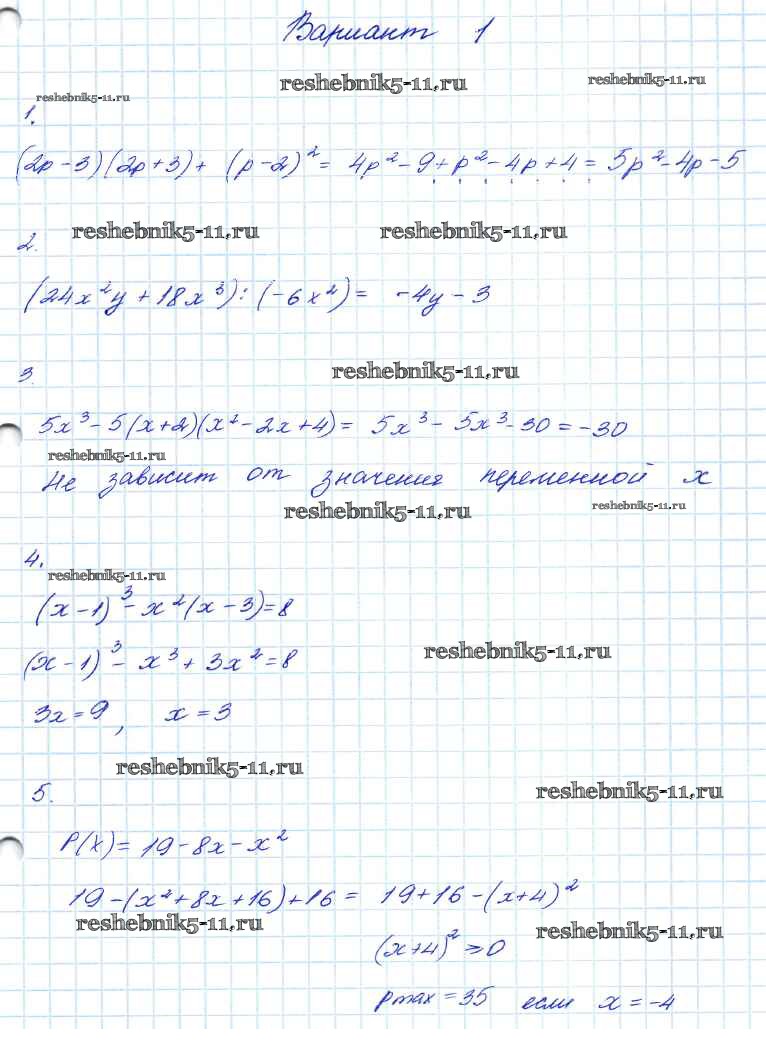 Вариант 1
reshebnik5-11.ru reshebnik5-11.ru
reshebnik5-11.ru
1.
(2p-3)(2p+3)+ (p-2)²= 4p²-9+p²-4p+4= 5p²-4p-5
2. reshebnik5-11.ru reshebnik5-11.ru
(24x²y+18x³):(-6x²)= -4y-3
3. reshebnik5-11.ru
5x³-5(x+2)(x²-2x+4)= 5x³-5x³-30=-30
reshebnik5-11.ru
Не зависит от значения переменной x
reshebnik5-11.ru reshebnik5-11.ru
4.
reshebnik5-11.ru
(x-1)³-x²(x-3)=8
(x-1)³-x³+3x²=8
reshebnik5-11.ru
3x=9, x=3
reshebnik5-11.ru
5. reshebnik5-11.ru
P(x)=19-8x-x²
19-(x²+8x+16)+16= 19+16-(x+4)²
reshebnik5-11.ru reshebnik5-11.ru
(x+4)²≥0
pmax=35 если x=-4